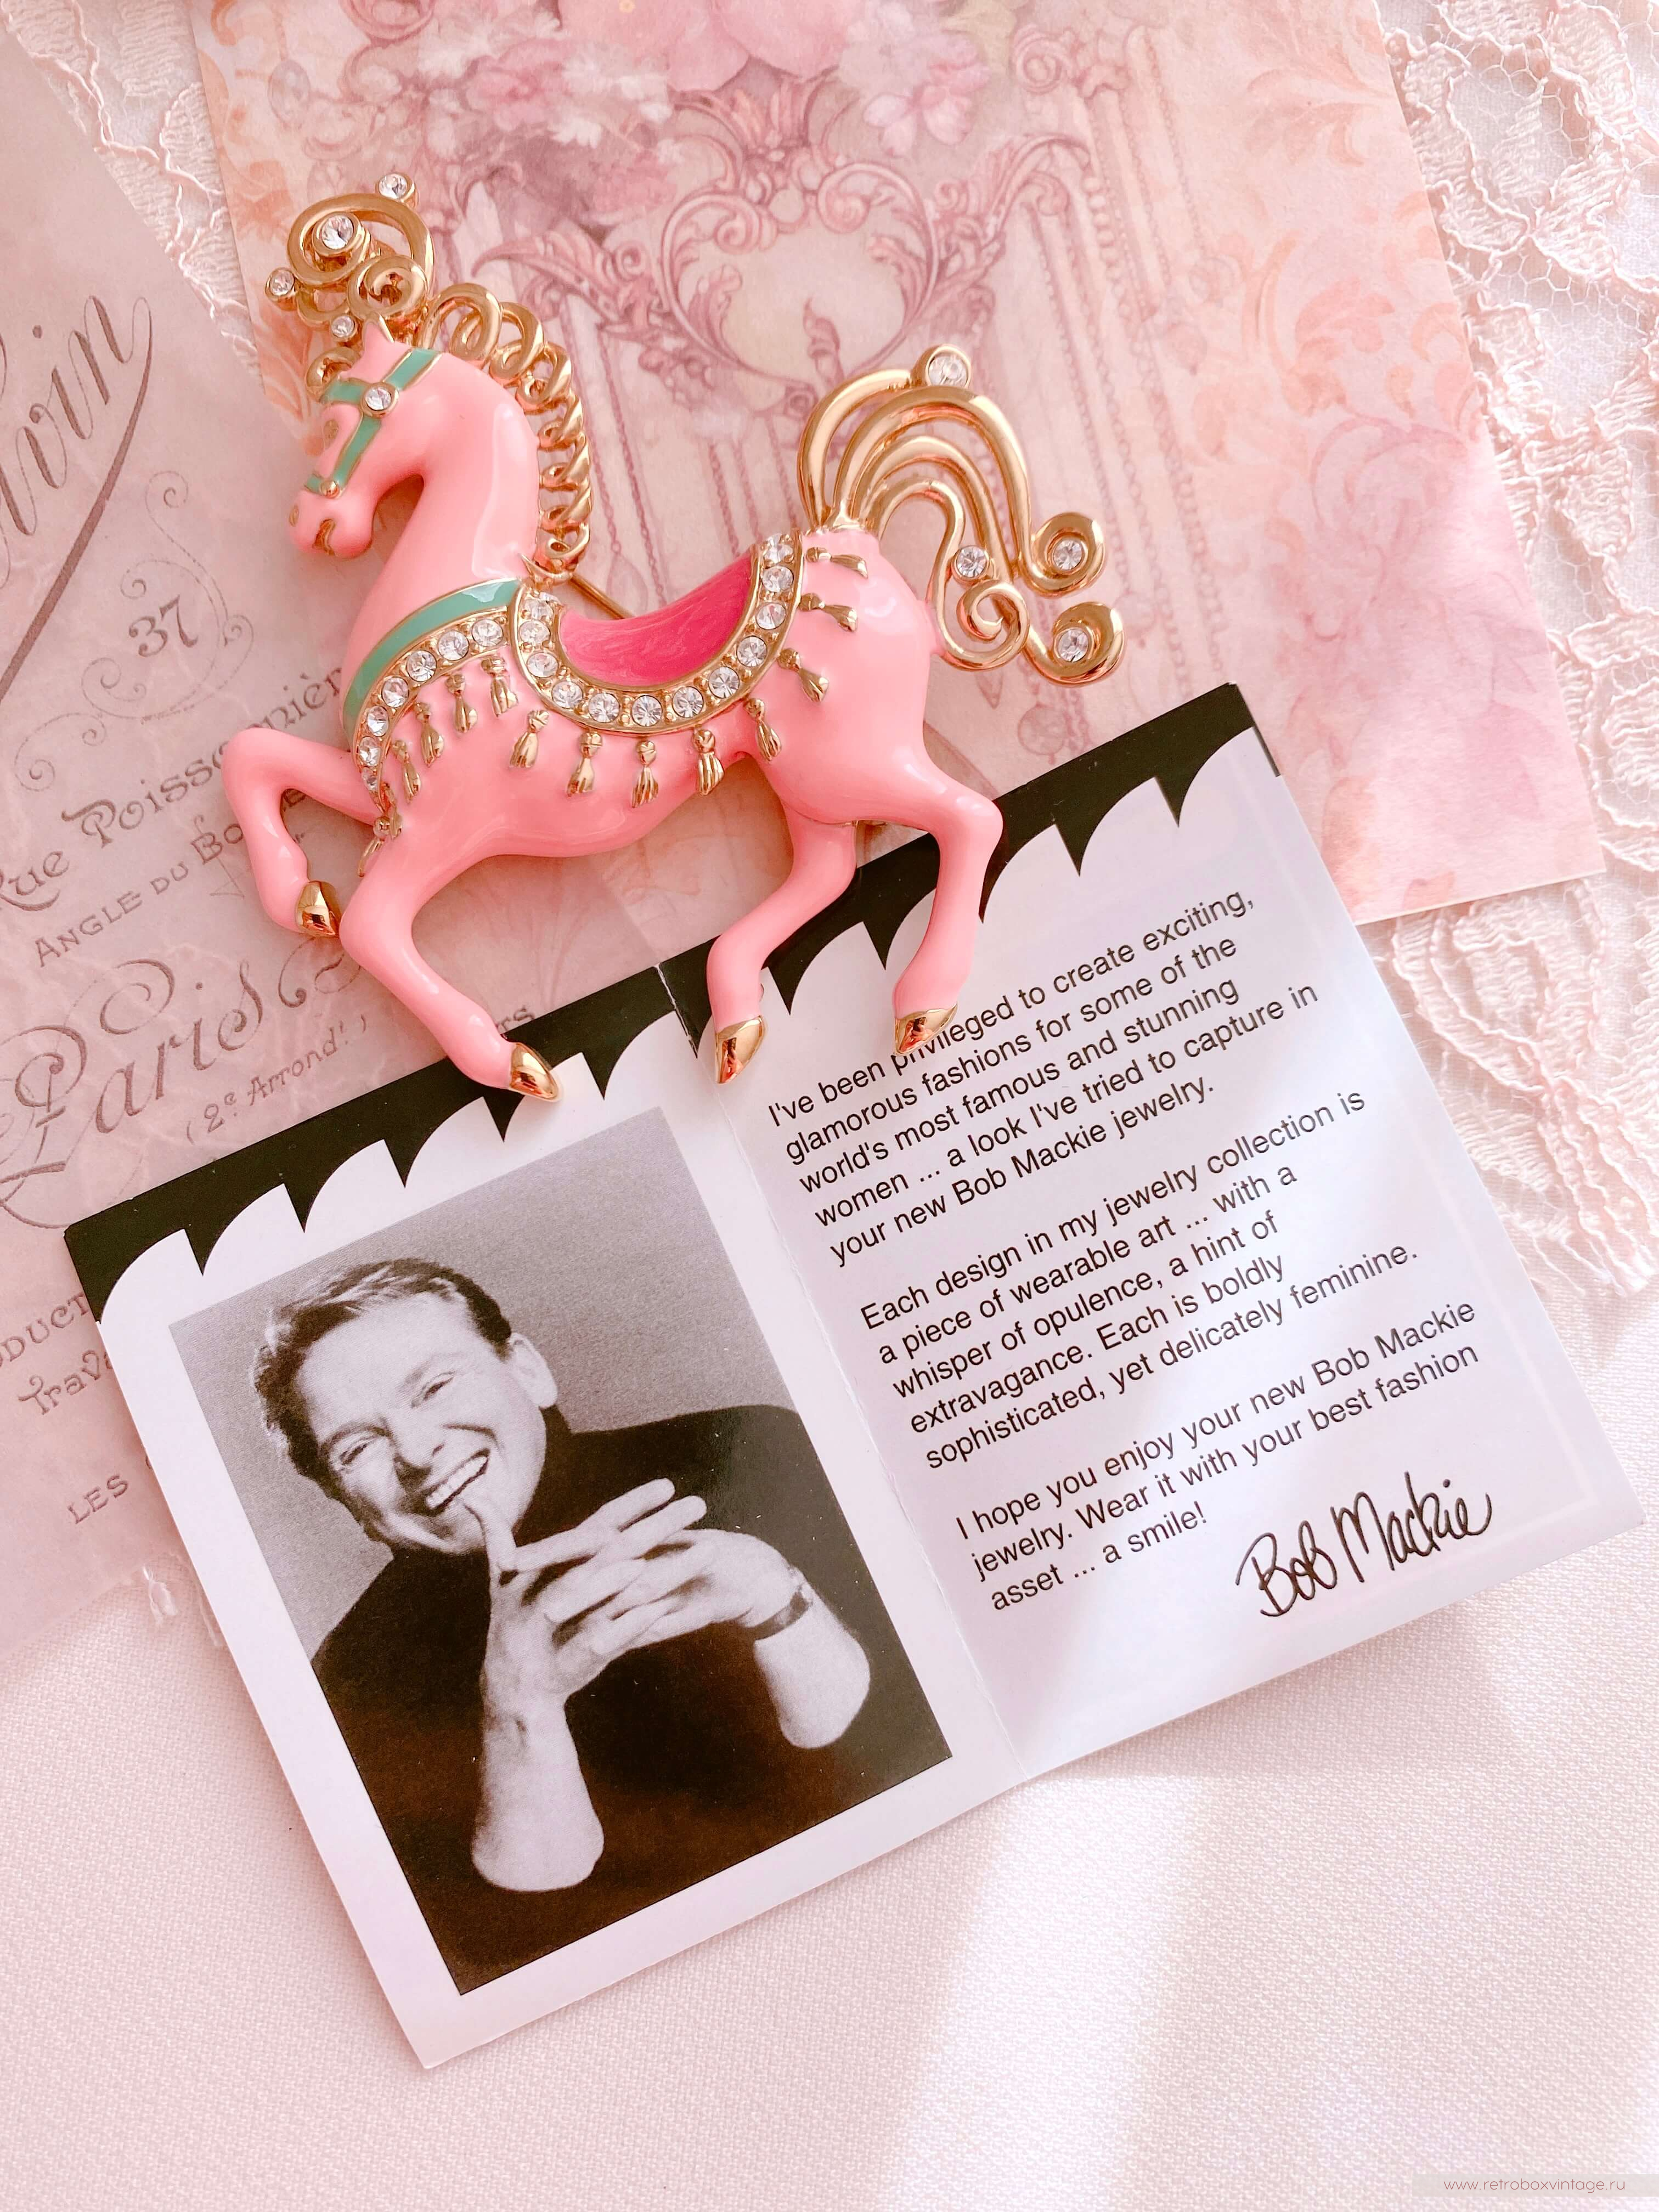 lwin
37
Rue Poissonnièr
ANGLE DU BO
Paris
(2e Arrond.t)
TS
DUCT
Trava
LES
I've been privileged to create exciting,
glamorous fashions for some of the
world's most famous and stunning
women ... a look I've tried to capture in
your new Bob Mackie jewelry.
Each design in my jewelry collection is
a piece of wearable art ... with a
whisper of opulence, a hint of
extravagance. Each is boldly
sophisticated, yet delicately feminine.
I hope you enjoy your new Bob Mackie
jewelry. Wear it with your best fashion
asset ... a smile!
Bob Mackie
www.retroboxvintage.ru